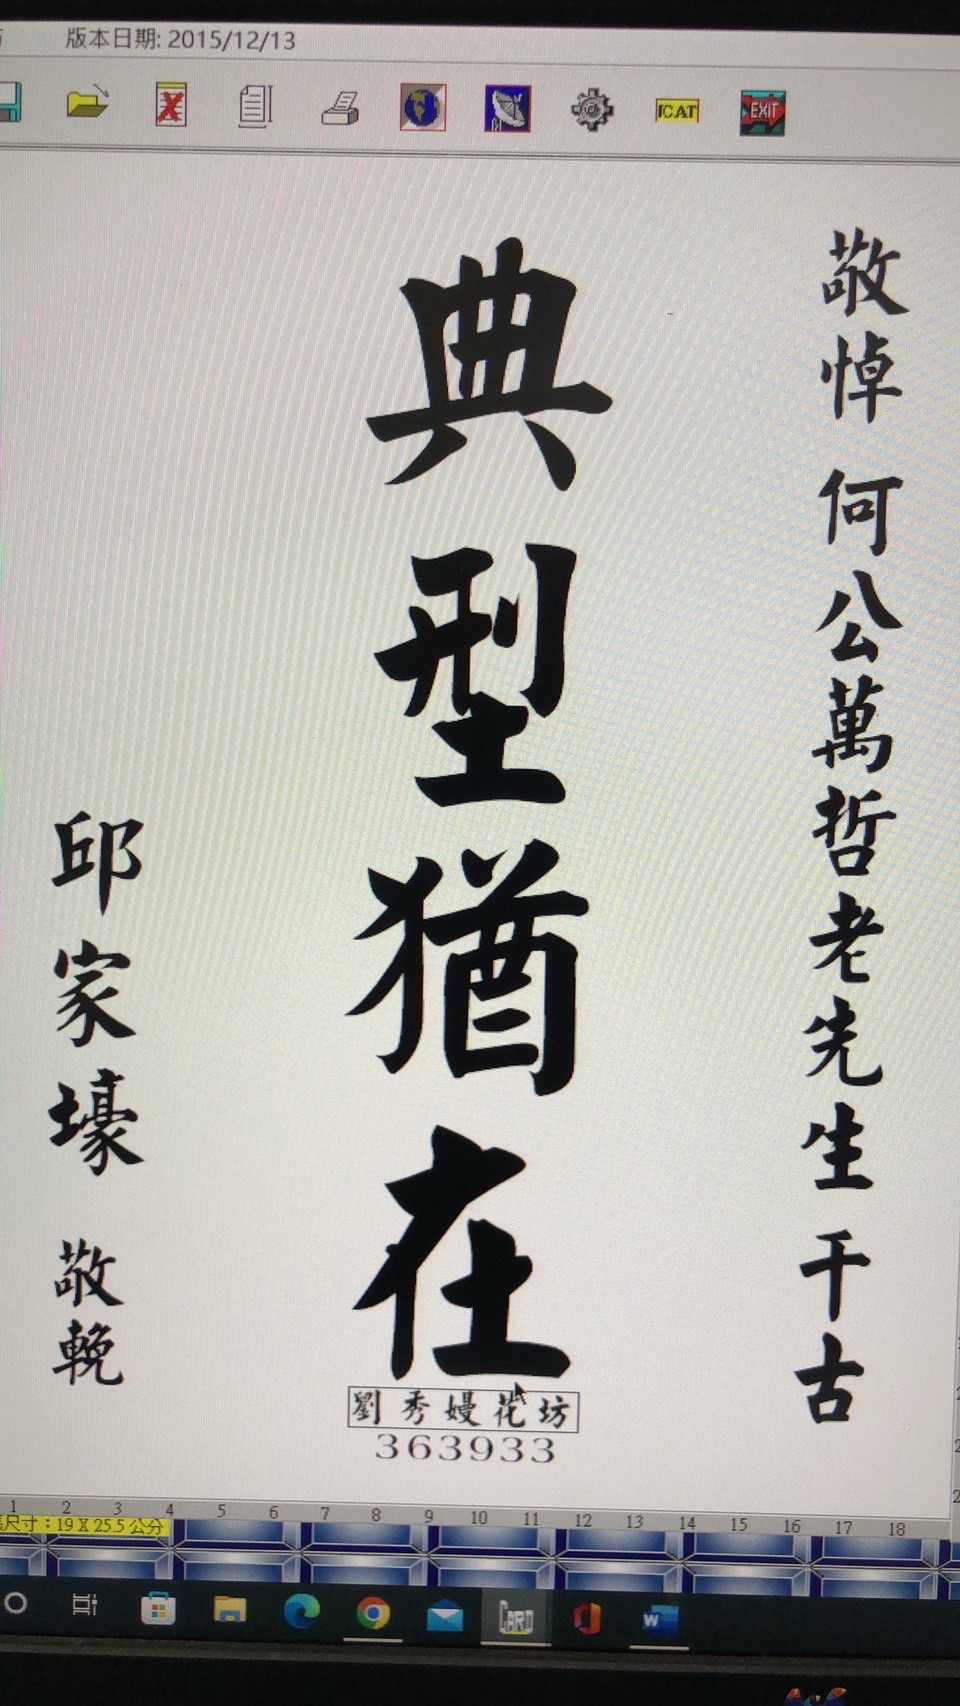 版本日期: 2015/12/13
CAT
EXIT
敬悼 何公萬哲老先生 千古
典型猶在
邱家壕 敬輓
劉秀嫚花坊
363933
1 2 3 4 5 6 7 8 9 10 11 12 13 14 15 16 17 18
尺寸：19 X 25.5 公分
CARD
W